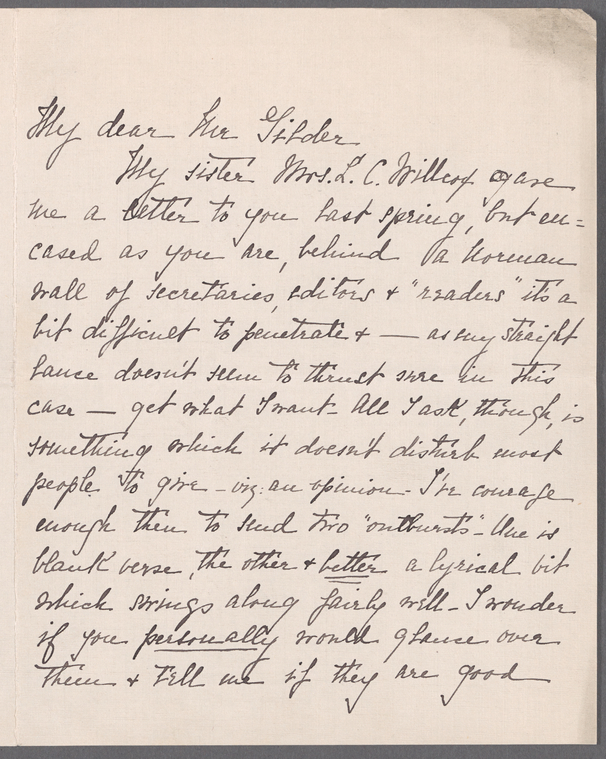 My dear Mr Gilder
My sister Mrs. L. C. Willcox gave
me a letter to you last spring, but en=
cased as you are, behind a Norman
wall of secretaries, editors & "readers" it's a
bit difficult to penetrate & — as my straight
lance doesn't seem to thrust sure in this
case — get what I want. All I ask, though, is
something which it doesn't disturb most
people to give - viz: an opinion - I've courage
enough then to send two "outbursts" - One is
blank verse, the other & better a lyrical bit
which swings along fairly well - I wonder
if you personally would glance over
them & tell me if they are good